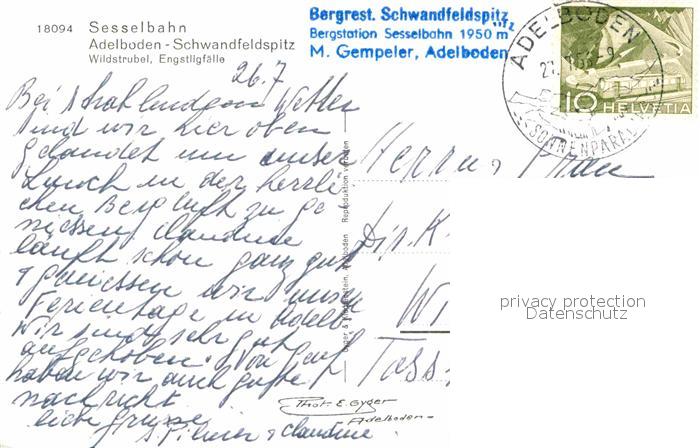 18094 Sesselbahn
Adelboden - Schwandfeldspitz
Wildstrubel, Engstligfälle
Bergrest. Schwandfeldspitz
Bergstation Sesselbahn 1950 m
M. Gempeler, Adelboden
ADELBODEN
SONNENPARAD
10 HELVETIA
26.7
Bei strahlendem Wetter
sind wir hier oben
gelandet um unser
Lunch in der herrli
chen Bergluft zu ge
niessen. Claudine
läuft schon ganz gut
geniessen wir unsere
Ferientage in Adelb
Wir sind sehr gut
aufgehoben. Von
haben wir auch gute
nachricht
liebe Grüsse
Claudine
Herrn Frau
Dir. K.
Wi
Toss.
Gyger & Klopfenstein, Adelboden Reproduktion verboten
Phot. E. Gyger
Adelboden
privacy protection
Datenschutz